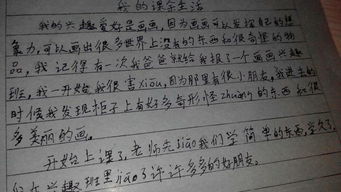 我的课余生活
我的兴趣爱好是画画,因为画画可以发挥自己的想
象力,可以画出很多世界上没有的东西和很奇怪的物
品,我记得有一次我爸爸就给我报了一个画画兴趣
班,我一开始我很害xiou,因为那里有很小朋友,我进去的
时候我发现柜子上有好多奇形怪zhuang的东西和很
多美丽的画。
开始上课了,老师先jiao我们学简单的东西,学久了,
兴趣班里jiao了许许多多的好朋友。